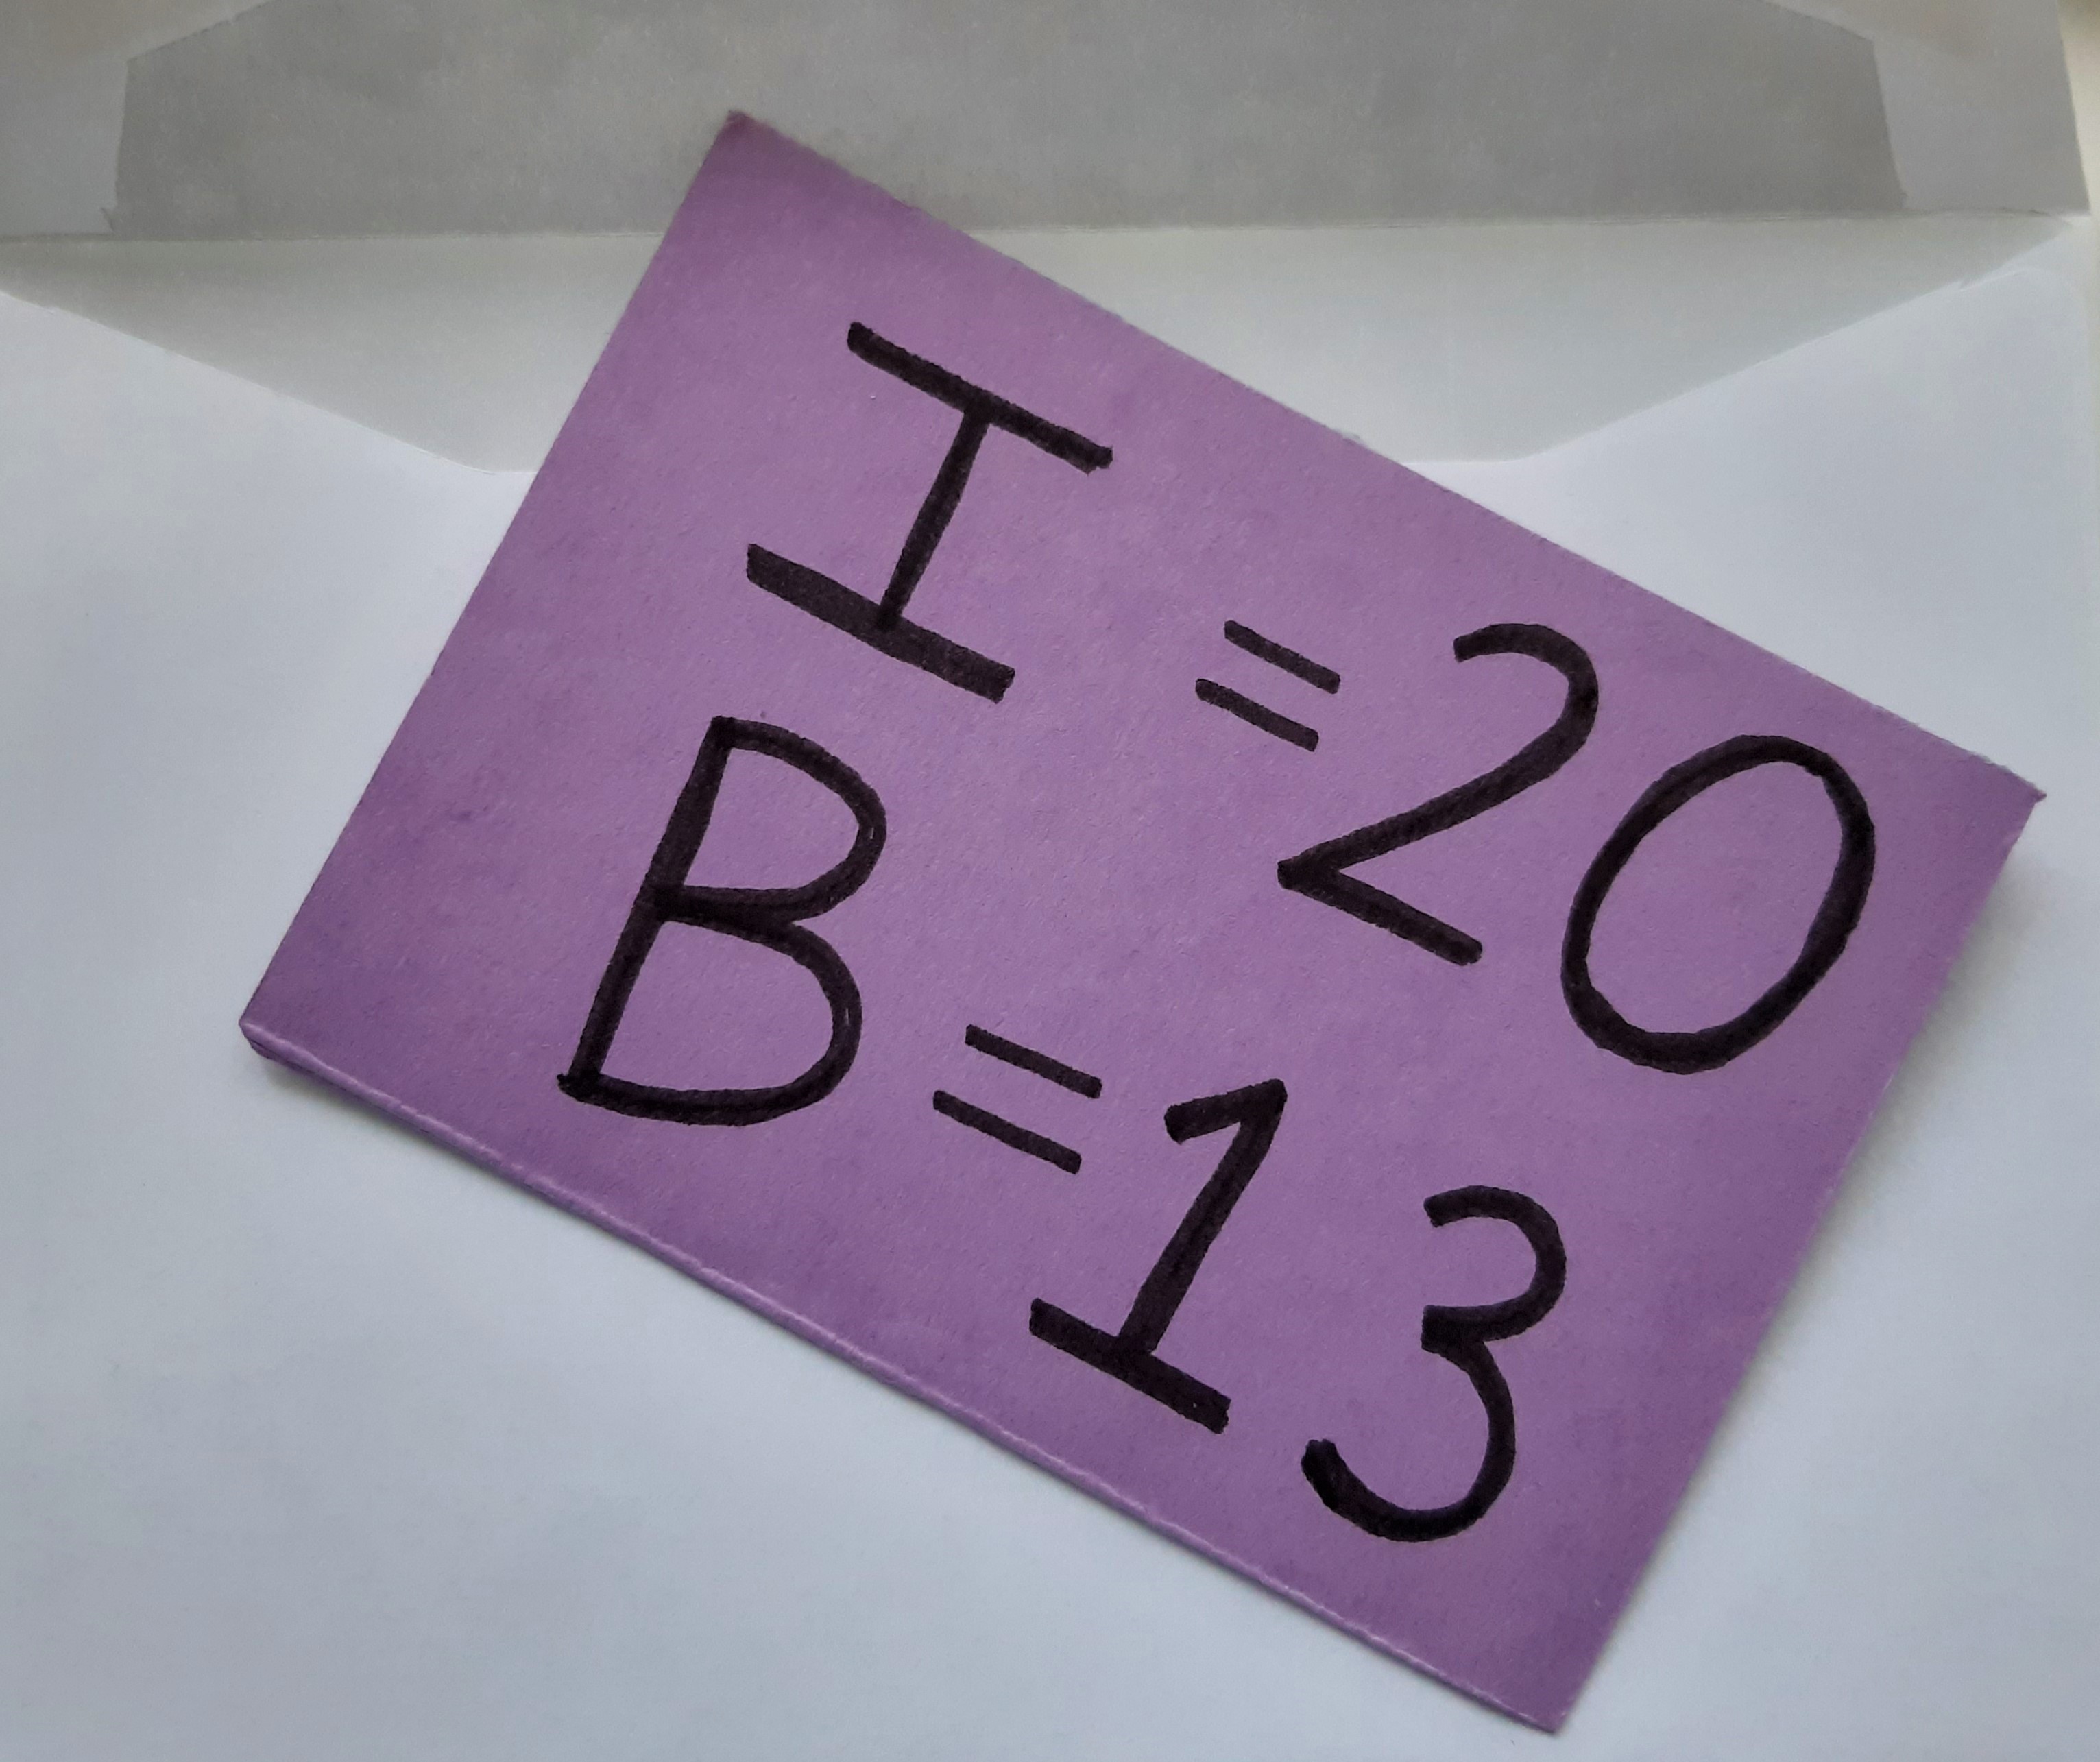 I = 20
B = 13